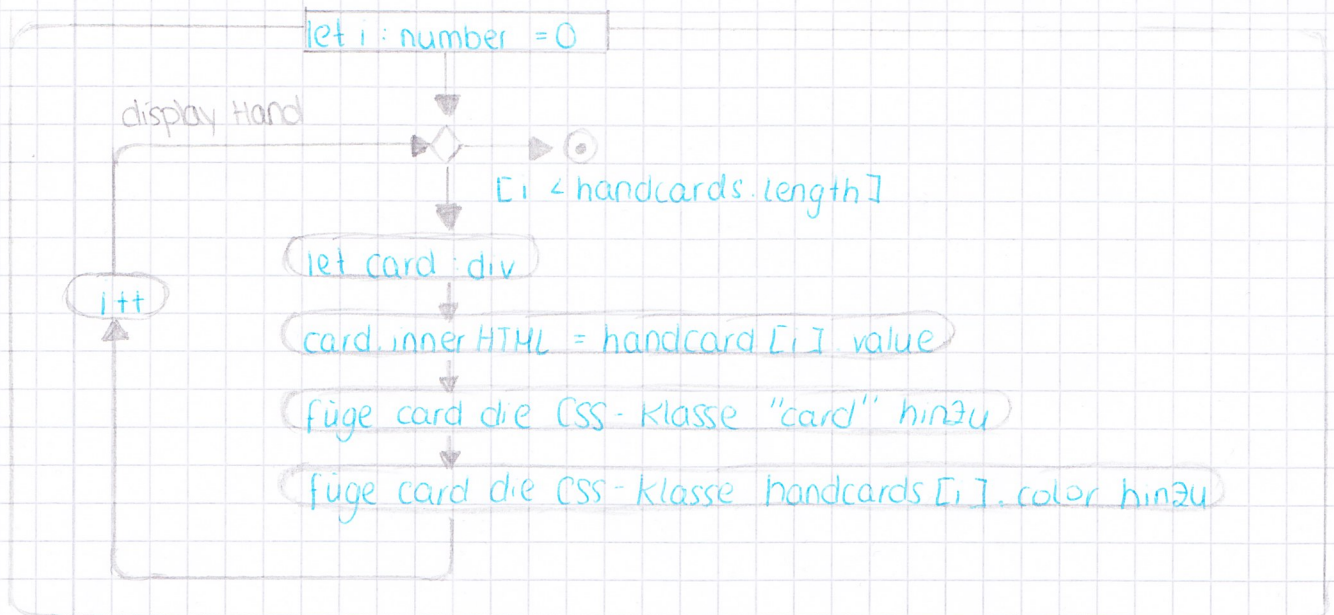 let i : number = 0
display Hand
[i < handcards.length]
let card : div
i++
card.innerHTML = handcard [i].value
füge card die CSS-Klasse "card" hinzu
füge card die CSS-Klasse handcards [i].color hinzu